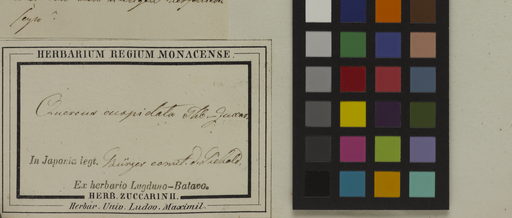 legr.
HERBARIUM REGIUM MONACENSE.
Quercus cuspidata Thb. Zuccar.
In Japonia legt. Bürger comit. de Siebold.
Ex herbario Lugduno-Batavo.
HERB. ZUCCARINII.
Herbar. Univ. Ludov. Maximil.